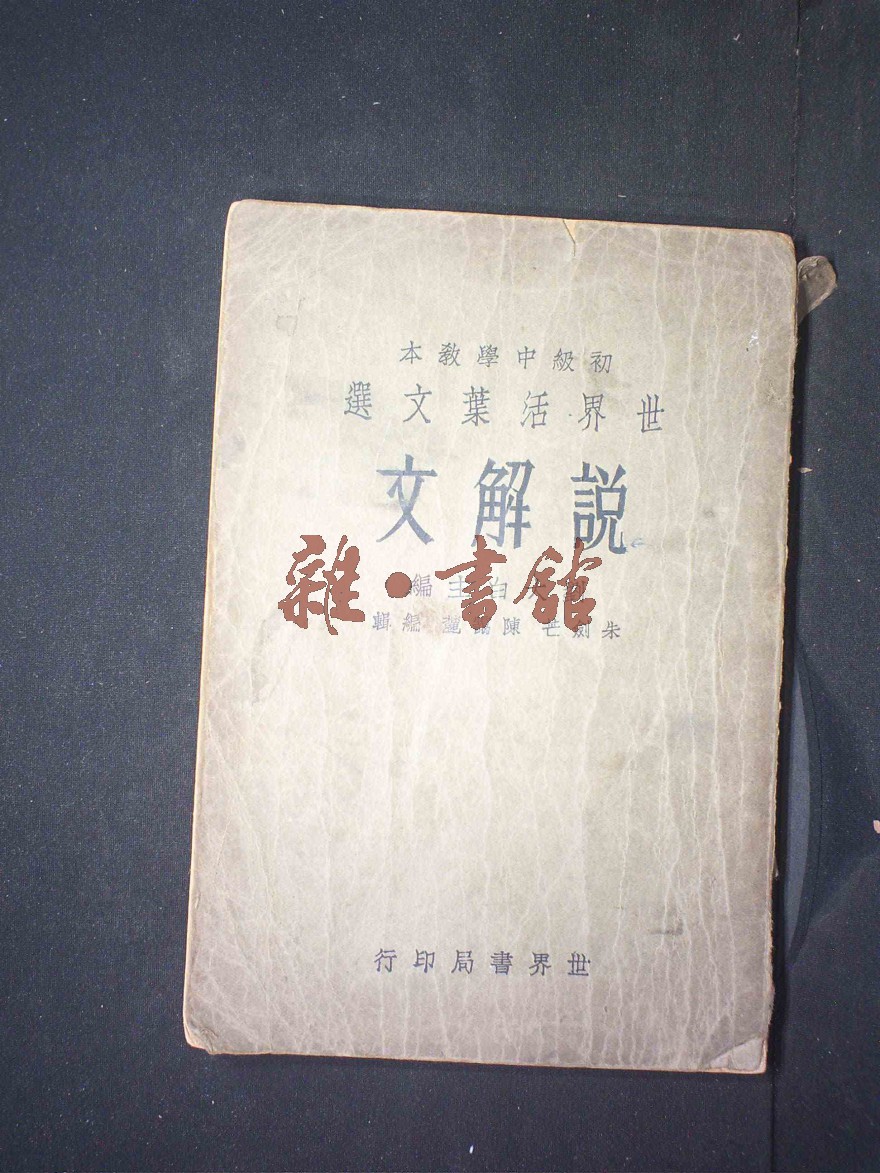 初級中學教本
世界活葉文選
説解文
白主編
朱劍芒 陳靄麓 編輯
世界書局印行
雜·書館